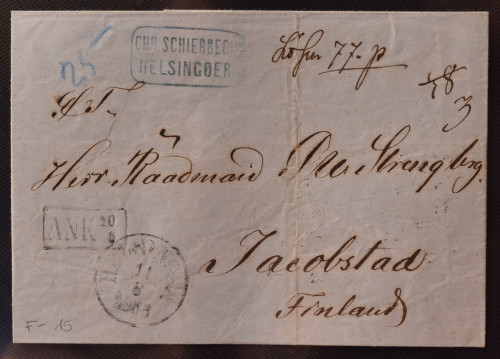 CHR. SCHIERBECK
HELSINGØER
77. p
18
3
Herr Raadmand P. U. Strengberg.
ANK 20
8
11
8
Jacobstad
Finland
F-15